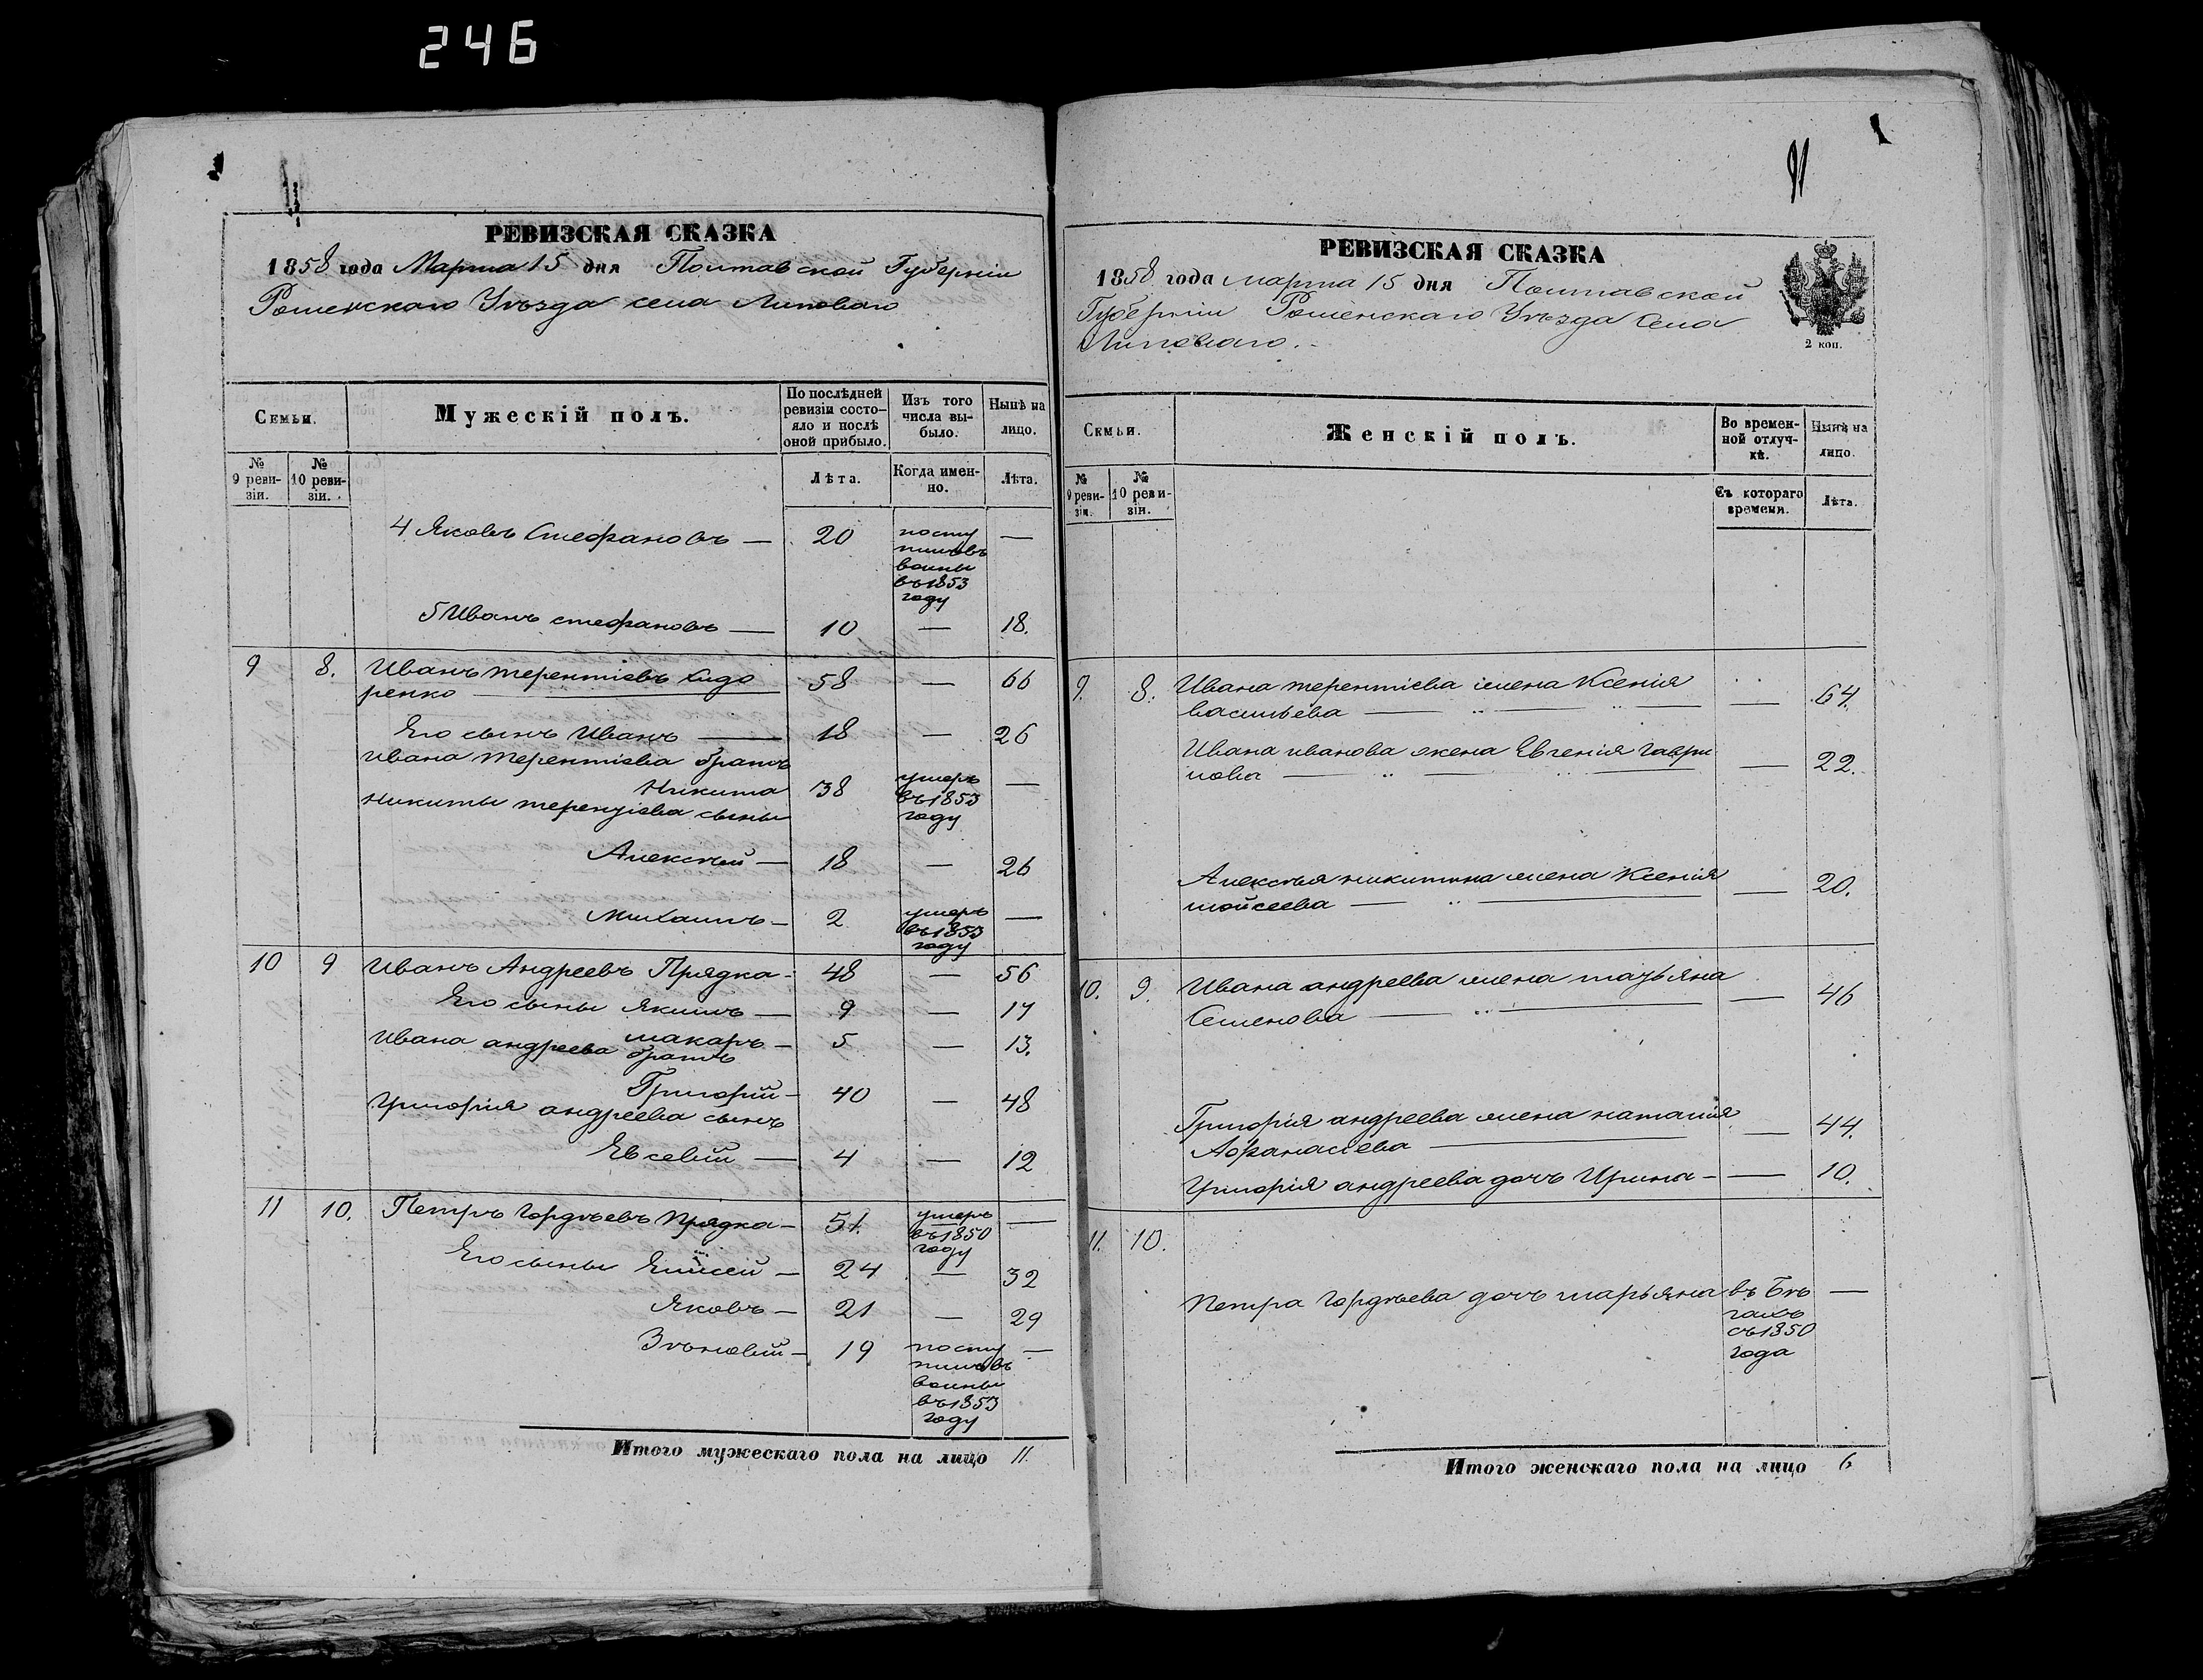 246
РЕВИЗСКАЯ СКАЗКА
1858 года Марта 15 дня Полтавской Губерніи
Роменскаго Уѣзда села Липоваго
Семьи.
Мужескій полъ.
По послѣдней
ревизіи состо-
яло и послѣ
оной прибыло.
Изъ того
числа вы-
было.
Нынѣ на
лицо.
№
9 реви-
зіи.
№
10 реви-
зіи.
Лѣта.
Когда имен-
но.
Лѣта.
4 Яковъ Стефановъ — 20 —
посту
пилъ въ
воины
въ 1853
году
5 Иванъ стефановъ — 10 — 18.
9 8. Иванъ терентіевъ Сидо
ренко — 58 — 66
Его сынъ Иванъ — 18 — 26
Ивана терентіева братъ
Никита 38 —
умеръ
въ 1853
году
Никиты терентіева сыны
Алексѣй — 18 — 26
Михаилъ — 2 —
умеръ
въ 1853
году
10 9 Иванъ Андреевъ Прядка - 48 — 56
Его сыны Якимъ — 9 — 17
макаръ — 5 — 13.
Ивана андреева братъ
Григорій - 40 — 48
Григорія андреева сынъ
Евсевій — 4 — 12
11 10. Петръ Гордѣевъ Прядка — 51. —
умеръ
въ 1850
году
Его сыны Елисей — 24 — 32
Яковъ — 21 — 29
Зѣновій — 19 —
посту
пилъ въ
воины
въ 1853
году
Итого мужескаго пола на лицо 11.
91
РЕВИЗСКАЯ СКАЗКА
1858 года марта 15 дня Полтавской
Губерніи Роменскаго Уѣзда Села
Липоваго.
2 коп.
Семьи.
Женскій полъ.
Во времен-
ной отлуч-
кѣ.
Нынѣ на
лицо.
№
9 реви-
зіи.
№
10 реви-
зіи.
Съ котораго
времени.
Лѣта.
9. 8. Ивана терентіева жена Ксенія
васильева — — 64.
Ивана иванова жена Евгенія гаври
лова — — 22.
Алексѣя никитина жена Ксенія
мойсеева — — 20.
10. 9. Ивана андреева жена татьяна
Семенова — — 46
Григорія андреева жена наталія
Афанасіева — — 44.
Григорія андреева дочь Ирина — — 10.
11. 10.
Петра Гордѣева дочь марьяна —
въ Бѣ
гахъ
съ 1850
года
Итого женскаго пола на лицо 6